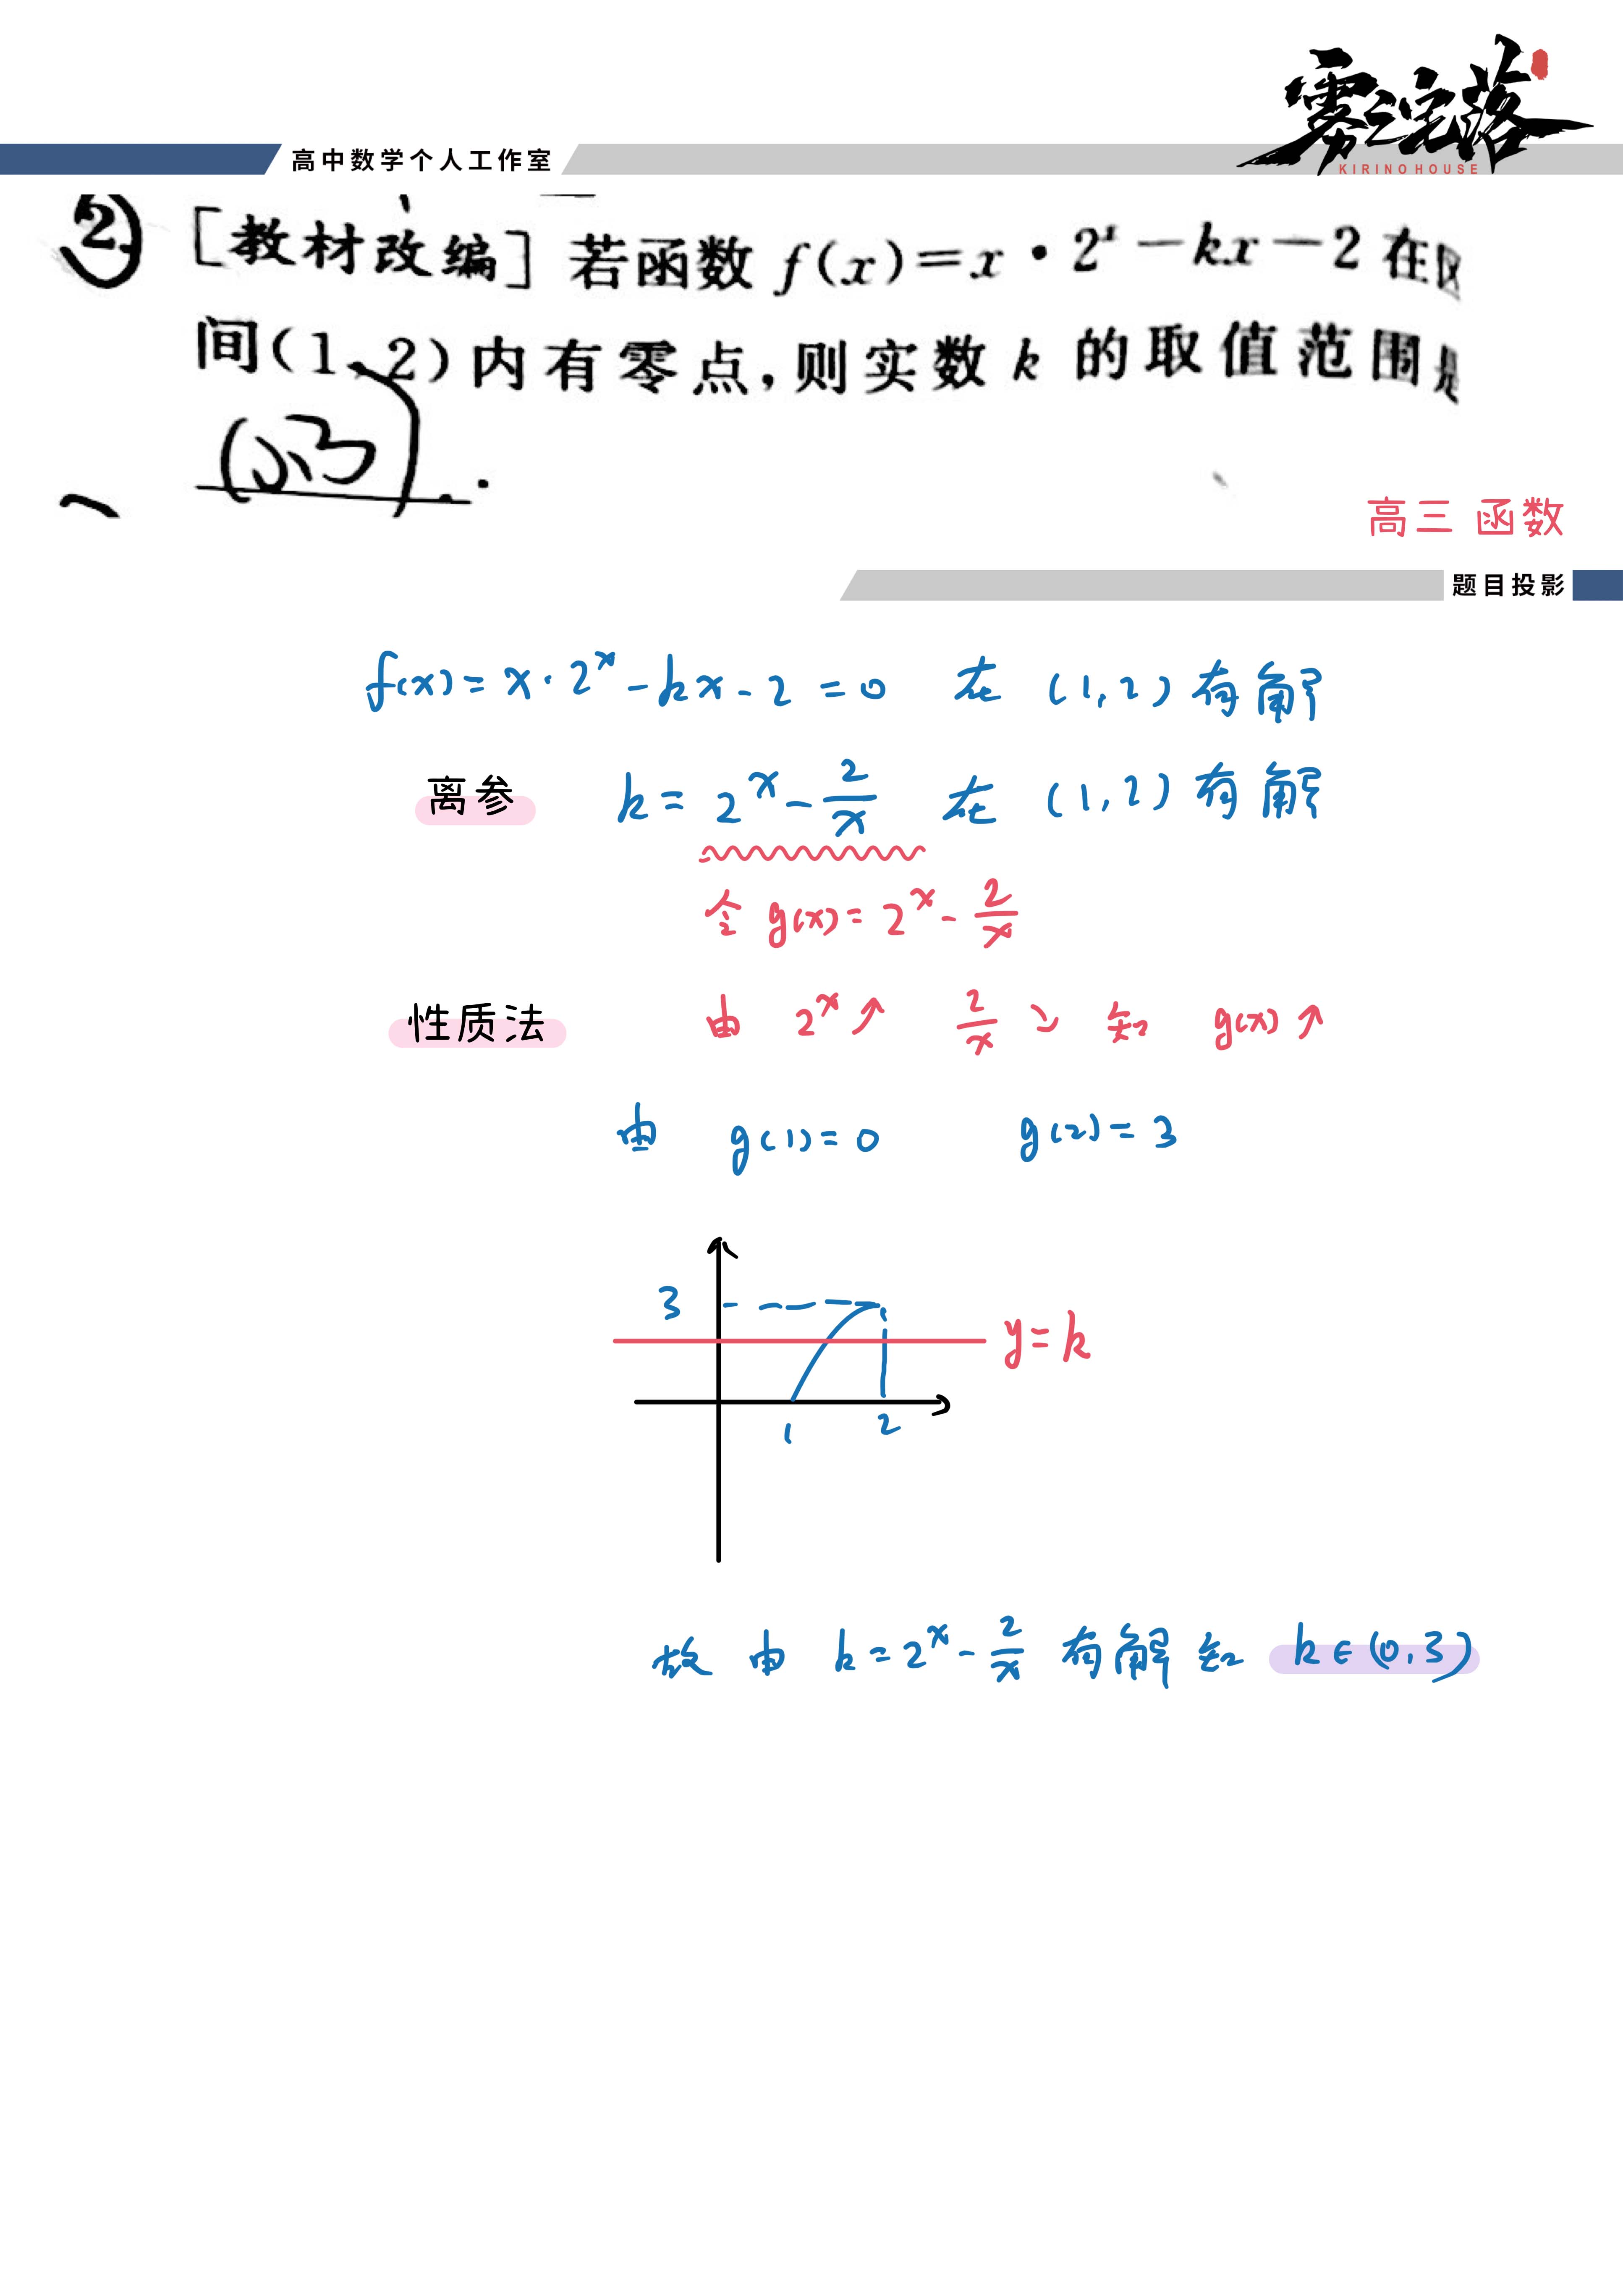 雾之宅落
KIRINO HOUSE
高中数学个人工作室
2. [教材改编] 若函数 f(x)=x·2ˣ-kx-2 在区
间(1,2)内有零点,则实数 k 的取值范围是
(0,3).
高三 函数
题目投影
f(x)=x·2ˣ-kx-2=0 在 (1,2)有解
离参 k=2ˣ-2/x 在 (1,2)有解
令 g(x)=2ˣ-2/x
性质法 由 2ˣ↗ 2/x↘ 知 g(x)↗
由 g(1)=0 g(2)=3
3
y=k
1 2
故由 k=2ˣ-2/x 有解知 k∈(0,3)